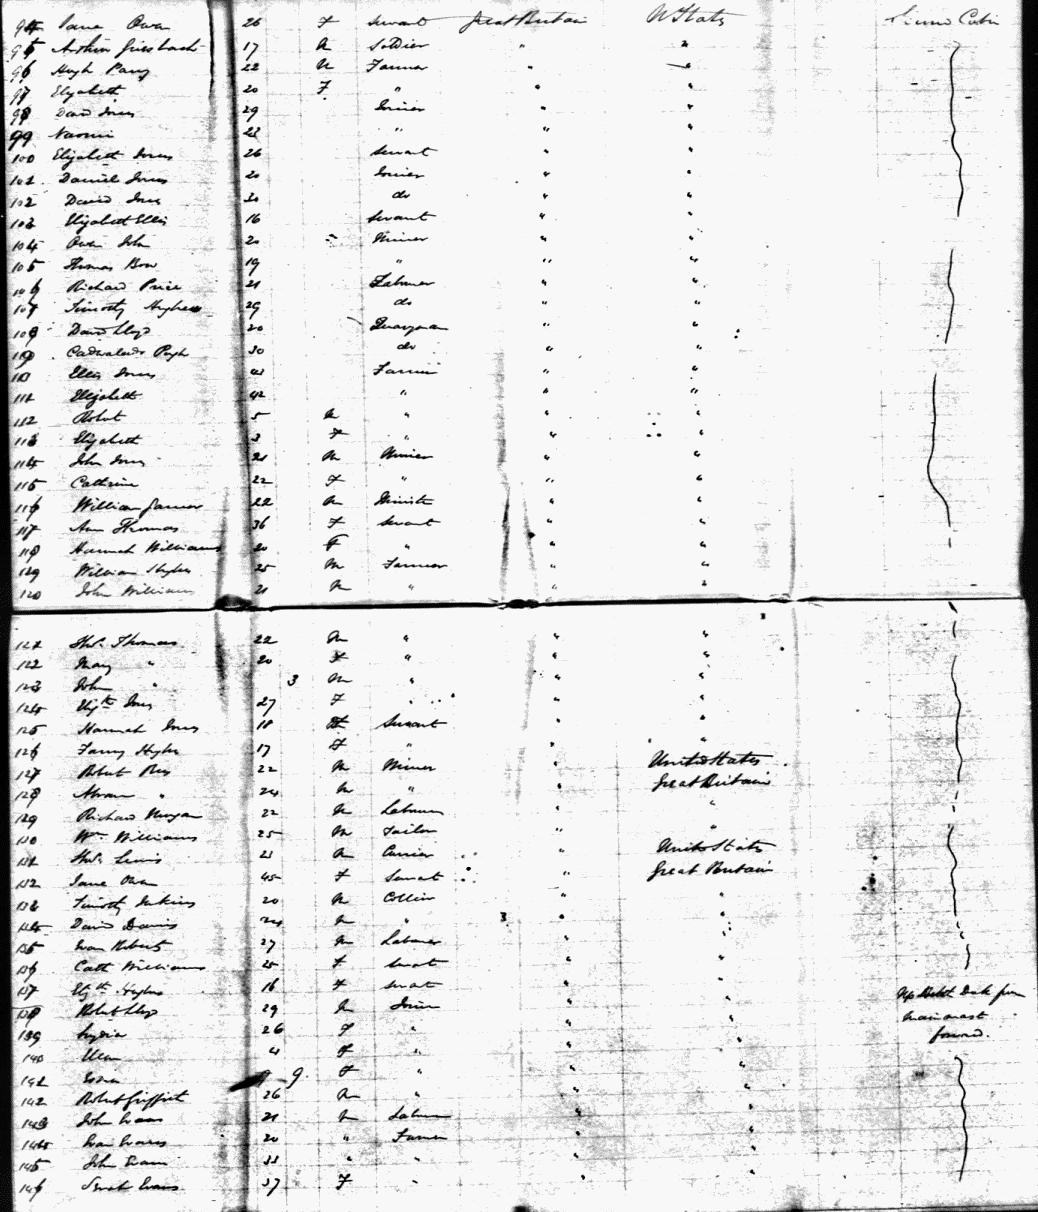 94 Jane Owen 26 F Servant Great Britain U States Second Cabin
95 Arthur 17 M Soldier " "
96 Hugh Parry 22 M Farmer " "
97 Elizabeth 20 F " " "
98 David Jones 29 Joiner " "
99 Naomi 22 " " "
100 Elizabeth Jones 26 Servant " "
101 Daniel Jones 20 Joiner " "
102 David Jones 30 do " "
103 Elizabeth Ellis 16 Servant " "
104 Owen John 20 Miner " "
105 Thomas Bow 19 " " "
106 Richard Price 21 Labourer " "
107 Timothy Hughes 29 do " "
108 David Lloyd 20 Quarryman " "
109 Pugh 30 do " "
110 Ellis Jones 43 Farmer " "
111 Elizabeth 42 " " "
112 Robert 5 M " " "
113 Elizabeth 3 F " " "
114 John Jones 21 M Miner " "
115 Cathrine 22 F " " "
116 William 22 M Minister " "
117 Ann Thomas 36 F Servant " "
118 Hannah Williams 20 F " " "
119 William Hughes 25 M Farmer " "
120 John Williams 21 M " " "
121 Thos. Thomas 22 M " " "
122 Mary " 20 F " " "
123 John " 3 M " " "
124 Elizth Jones 27 F " " "
125 Hannah Jones 18 F Servant " "
126 Fanny Hughes 17 F " " "
127 Robert Rees 22 M Miner " United States
128 " 24 M " " Great Britain
129 Richard Morgan 22 M Labourer " "
130 Wm. Williams 25 M Tailor " "
131 Thos. Lewis 23 M Currier " United States
132 Jane Owen 45 F Servant " Great Britain
133 Timothy Jenkins 20 M Collier " "
134 David Davis 24 M " " "
135 Evan Roberts 27 M Labourer " "
136 Cath Williams 25 F Servant " "
137 Elizth Hughes 16 F Servant " "
138 Robert Lloyd 29 M Joiner " " Deck from
139 Lydia 26 F " " " main mast
140 Ellen 4 F " " " forward.
141 9 F " " "
142 Robert Griffith 26 M " " "
143 John Evans 21 M Labourer " "
144 Evan Evans 20 " Farmer " "
145 John Evans 33 " " " "
146 Sarah Evans 37 F " " "